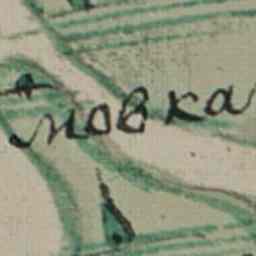 мовка